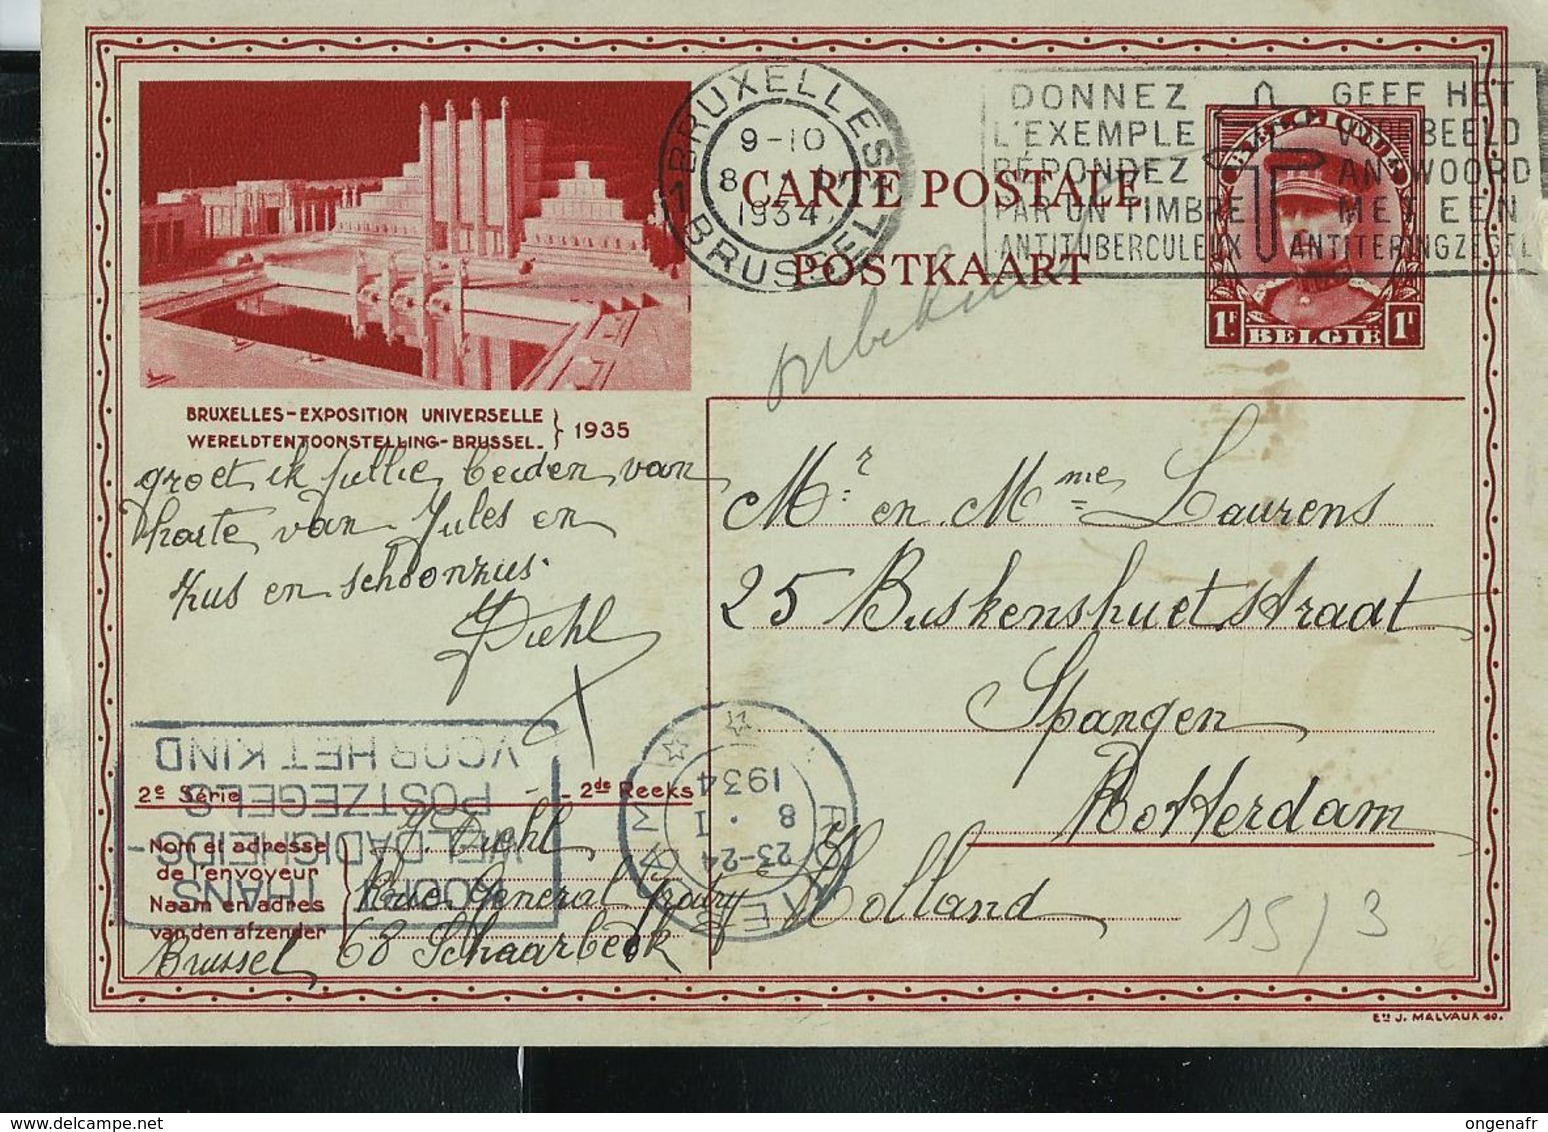 BRUXELLES
9-10
8
1934
BRUSSEL
DONNEZ
L'EXEMPLE
RÉPONDEZ
PAR UN TIMBRE
ANTITUBERCULEUX
GEEF HET
VOORBEELD
ANTWOORD
MET EEN
ANTITERINGZEGEL
CARTE POSTALE
POSTKAART
BELGIQUE
1F BELGIE 1F
onbekend
BRUXELLES-EXPOSITION UNIVERSELLE
WERELDTENTOONSTELLING-BRUSSEL. } 1935
groet ik jullie beiden van
harte van Jules en
zus en schoonzus.
Diehl
Mr. en Mme Laurens
25 Buskenshuetstraat
Spangen
Rotterdam
Holland
2e Série - 2de Reeks
Nom et adresse
de l'envoyeur
Naam en adres
van den afzender
J. Diehl
Rue General
68 Schaarbeek
Brussel
KOOPT THANS
WELDADIGHEIDS-
POSTZEGELS
VOOR HET KIND
23-24
8 · I
1934
15/3
Ets J. MALVAUX
ongenafr